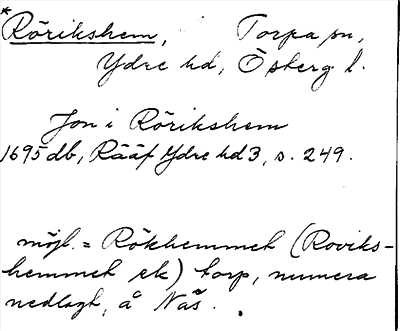 * Rörikshem, Torpa sn,
Ydre hd, Österg l.
Jon i Rörikshem
1695 db, Rääf Ydre hd 3, s. 249.
möjl. = Rökhemmet (Roviks-
hemmet ek) torp, numera
nedlagt, å Näs.